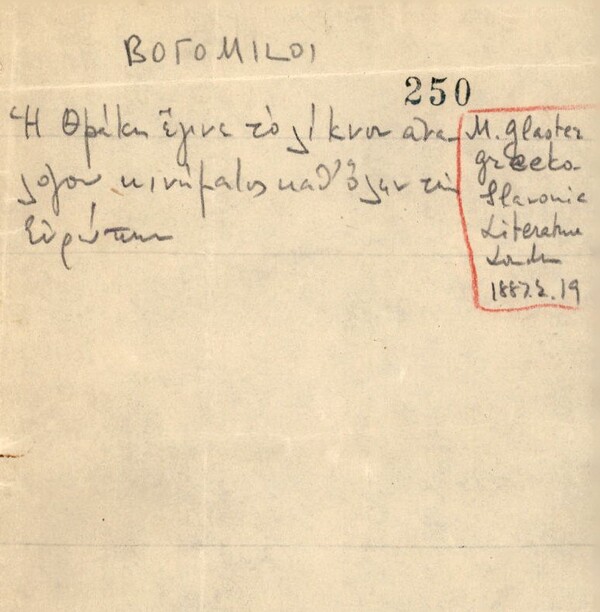 ΒΟΓΟΜΙLΟΙ
250
Ἡ Θράκη ἔγινε τὸ λίκνον ἀνα-
λόγου κινήματος καθ' ὅλην τὴν
Εὐρώπην
M. Glaster
greeko-
Slavonic
Literature
London
1887. σ. 19